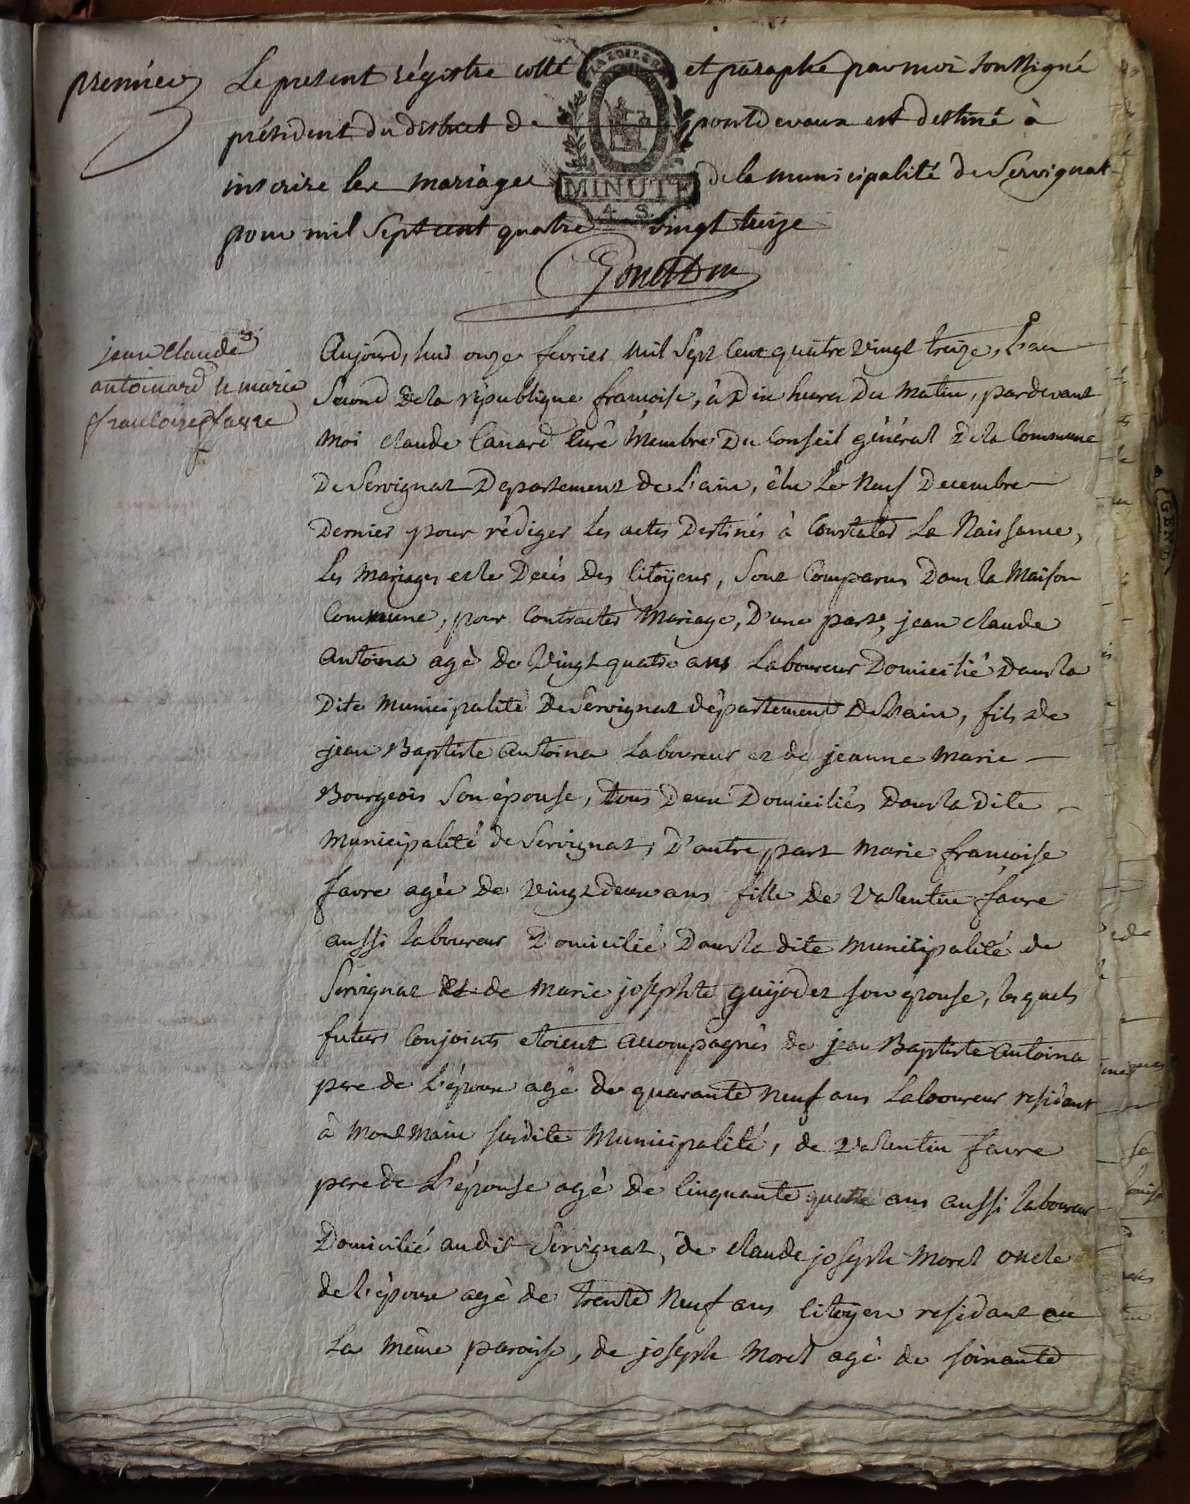 premier
Le present régistre cotté et paraphé par moi soussigné
président du district de pontdevaux est destiné à
inscrire les mariages de la municipalité de Servignat
pour mil Sept cent quatre vingt treize
MINUTE
4 S.
jean claude
antoinard & marie
francoise favre
Aujourd'hui onze fevrier mil Sept Cent quatre vingt treize, L'an
Second de la république francoise, à Dix heures Du Matin, pardevant
Moi claude Canard Curé Membre Du Conseil général De la Commune
De Servignat Departement de L'ain, élu Le Neuf Decembre
Dernier pour rédiger les actes Destinés à Constater La Naissance,
Les Mariages et le Decés Des Citoyens, Sont Comparus Dans la Maison
Commune, pour Contracter Mariage, D'une part, jean claude
Antoina agé de Vingt quatre ans Laboureur Domicilié Dans la
Dite Municipalité De Servignat département De L'ain, fils de
jean Baptiste Antoina Laboureur et de jeanne Marie
Bourgeois Son épouse, tous Deux Domiciliés Dans la Dite
Municipalité de Servignat, D'autre part Marie francoise
favre agée de Vingt deux ans fille de Valentin favre
aussi laboureur Domicilié Dans la dite Municipalité de
Servignat et de Marie josephte guijodet son epouse, lesquels
futurs Conjoints etoient accompagnés de jean Baptiste Antoina
pere de L'époux agé de quarante Neuf ans Laboureur residant
à Montmain susdite Municipalité, de Valentin favre
pere de L'épouse agé de Cinquante quatre ans aussi laboureur
Domicilié audit Servignat, de claude joseph Morel oncle
de l'époux agé de trente Neuf ans Citoyen residant en
La même paroisse, de joseph Morel agé de soixante